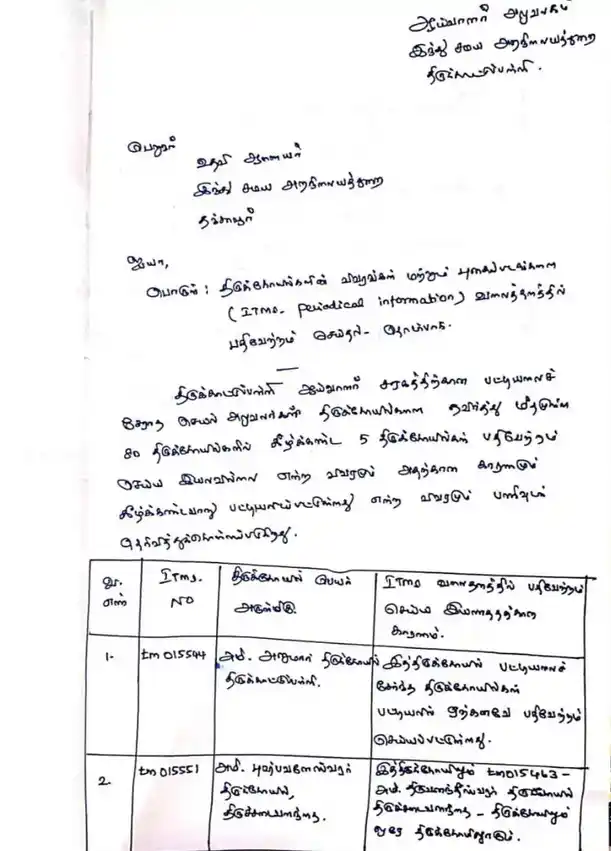 ஆய்வாளர் அலுவலகம்
இந்து சமய அறநிலையத்துறை
திருக்காட்டுப்பள்ளி.
பெறுநர்
உதவி ஆணையர்
இந்து சமய அறநிலையத்துறை
தஞ்சாவூர்
ஐயா,
பொருள் : திருக்கோயில்களின் விவரங்கள் மற்றும் புகைப்படங்களை
(ITMS- Periodical information) வலைத்தளத்தில்
பதிவேற்றம் செய்தல்- தொடர்பாக.
திருக்காட்டுப்பள்ளி ஆய்வாளர் சரகத்திற்கான பட்டியலைச்
சேராத செயல் அலுவலர்கள் திருக்கோயில்களை தவிர்த்து மீதமுள்ள
80 திருக்கோயில்களில் கீழ்க்கண்ட 5 திருக்கோயில்கள் பதிவேற்றம்
செய்ய இயலவில்லை என்ற விவரமும் அதற்கான காரணமும்
கீழ்க்கண்டவாறு பட்டியலிடப்பட்டுள்ளது என்ற விவரமும் பணிவுடன்
தெரிவித்துக்கொள்ளப்படுகிறது.
வ.
எண்
ITMS.
NO
திருக்கோயில் பெயர்
அருள்மிகு.
ITMS வலைதளத்தில் பதிவேற்றம்
செய்ய இயலாததற்கான
காரணம்.
1.
tm 015544
அமி. அனுமார் திருக்கோயில்
திருக்காட்டுப்பள்ளி.
இத்திருக்கோயில் பட்டியலைச்
சேர்ந்த திருக்கோயில்கள்
பட்டியலில் ஏற்கனவே பதிவேற்றம்
செய்யப்பட்டுள்ளது.
2.
tm 015551
அமி.
திருக்கோயில்,
இத்திருக்கோயிலும் tm015463-
அமி. திருக்கோயில்
திருக்கோயிலும்
ஒரே திருக்கோயிலாகும்.